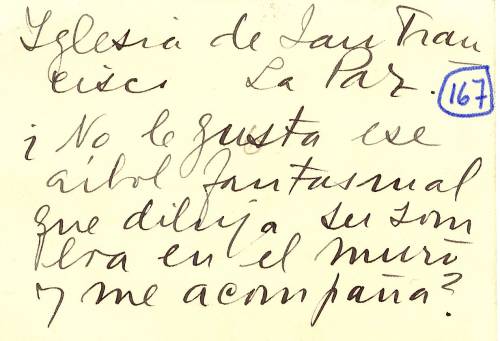 Iglesia de San Fran
cisco La Paz.
167
¡No le gusta ese
árbol fantasmal
que dibuja su som
bra en el muro
y me acompaña?